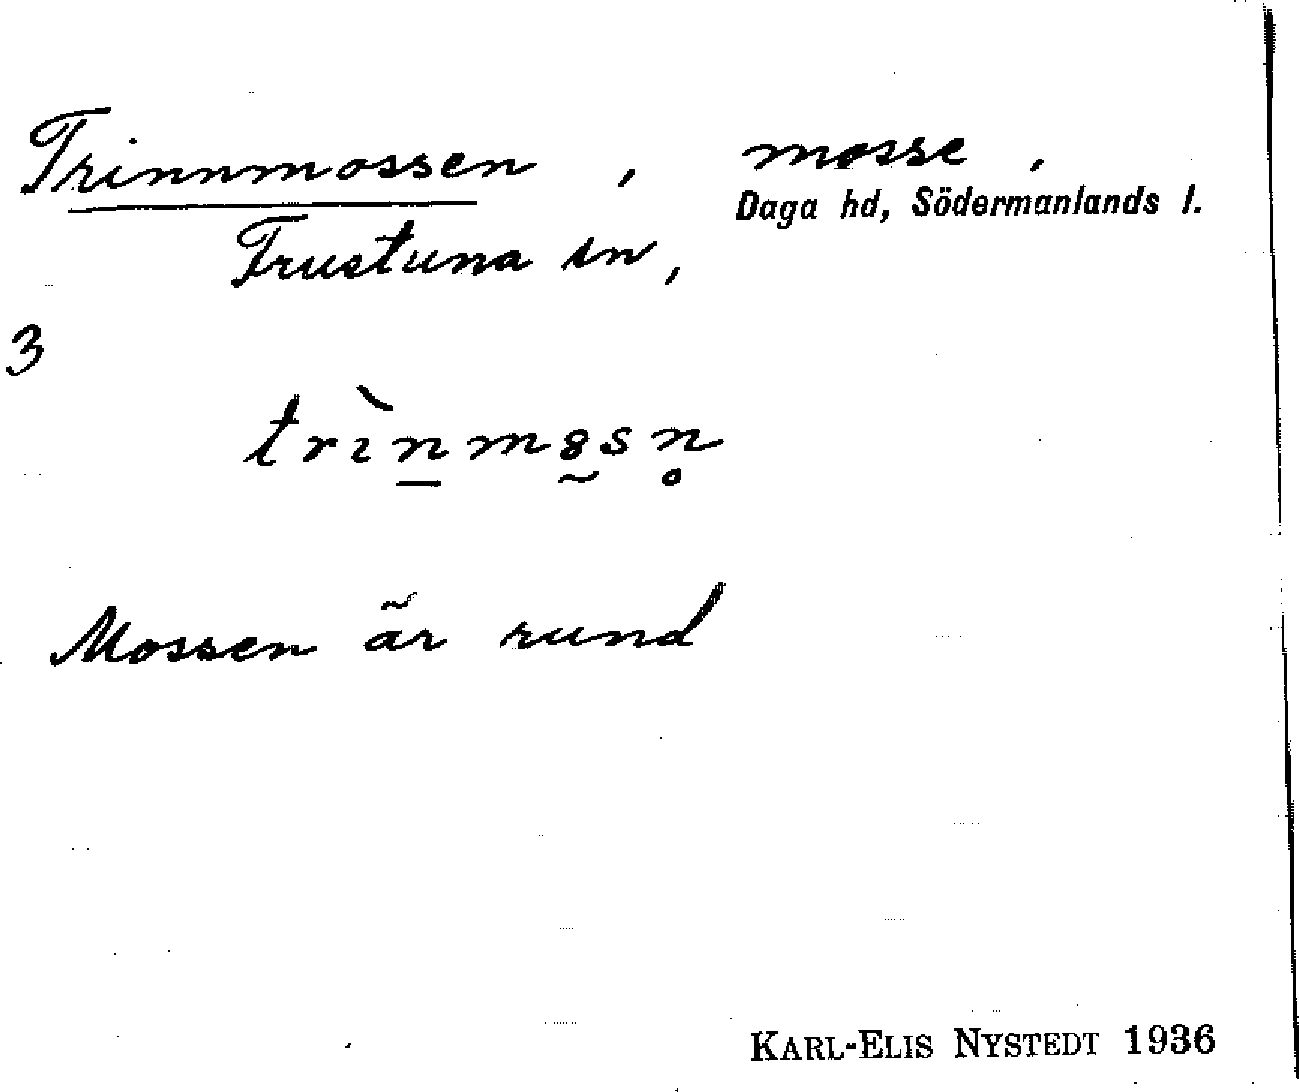 Trinnmossen, mosse,
Daga hd, Södermanlands l.
Frustuna sn,
3
trìn̠mo̰sn̥
Mossen är rund
KARL-ELIS NYSTEDT 1936